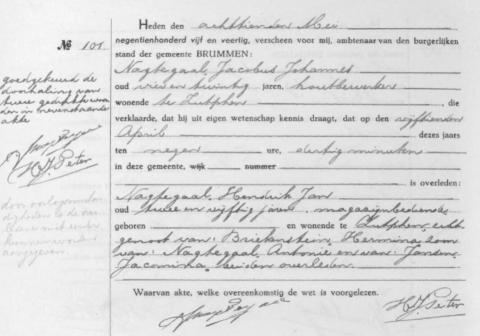 Heden den achttienden Mei
№ 101.
negentienhonderd vijf en veertig, verscheen voor mij, ambtenaar van den burgerlijken
stand der gemeente BRUMMEN:
Nagtegaal, Jacobus Johannes
oud vier en twintig jaren, houtbewerker
wonende te Zutphen, die
verklaarde, dat hij uit eigen wetenschap kennis draagt, dat op den vijftienden
April dezes jaars
ten negen ure, dertig minuten
in deze gemeente, wijk nummer
is overleden:
Nagtegaal, Hendrik Jan
oud twee en vijftig jaren, magazijnbediende
geboren en wonende te Zutphen, echt-
genoot van: Briekenstein, Hermina, zoon
van: Nagtegaal, Antonie en van: Jansen,
Jacomina, beiden overleden.
Waarvan akte, welke overeenkomstig de wet is voorgelezen.
H.J. Peter
goedgekeurd de
doorhaling van
twee gedrukte woor-
den in nevenstaande
akte
H.J. Peter
door